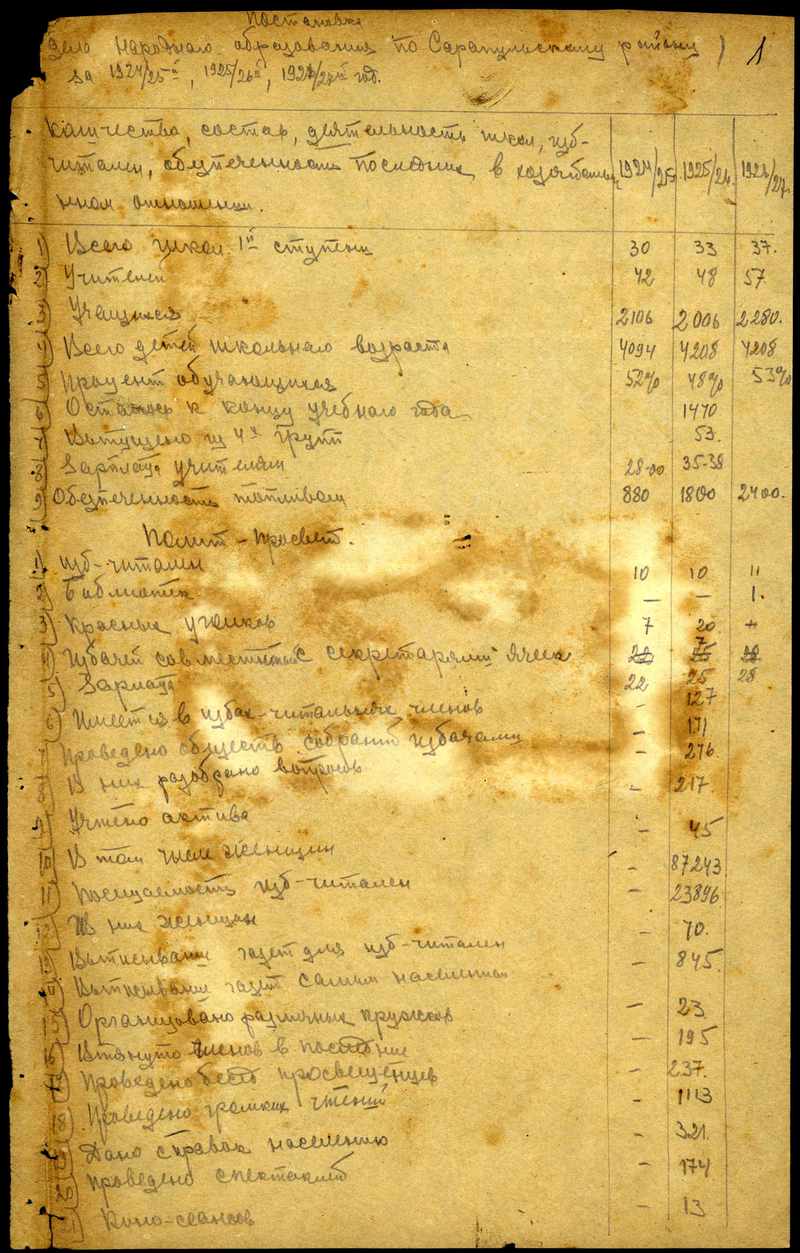 Постановка
дела народного образования по Сарапульскому району
за 1924/25й, 1925/26й, 192 /27й год.
1
Количество, состав, деятельность школ, изб-
читален, обеспеченность последних в хозяйствен 1924/25 1925/26. 1926/27.
ном отношении.
1) Всего школ 1й ступени 30 33 37.
2) Учителей 42 48 57
3) Учащихся 2106 2006 2280.
4) Всего детей школьного возраста 4094 4208 4208
5) Процент обучающихся 52% 48% 53%
6) Осталось к концу учебного года 1470
7) Выпущено из 4х групп 53.
8) Зарплата учителям 28-00 35-38
9) Обеспеченность топливом 880 1800 2400.
Полит-просвет.
1) Изб-читален 10 10 11
2) Библиотек — — 1.
3) Красных уголков 7 20 +
4) Избачей совместно с секретарями ячеек 7
5) Зарплата 22 25 28
6) Имеется в избах-читальнях членов - 127
7 Проведено обществ. собраний избачами - 171
8 В них разобрано вопросов - 276
9 Учтено актива - 217.
10) В том числе женщин - 45
11) Посещаемость изб-читален - 87243
12 Из них женщин - 23896
13) Выписывание газет для изб-читален - 70.
14) Выписывание газет самим населением - 845.
15) Организовано различных кружков - 23
16 Втянуто членов в последние - 195
17) Проведено бесед просвещенцев - 237.
18) Проведено громких чтений - 1113
19 Дано справок населению - 321.
20 Проведено спектаклей - 174
21 Кино-сеансов - 13